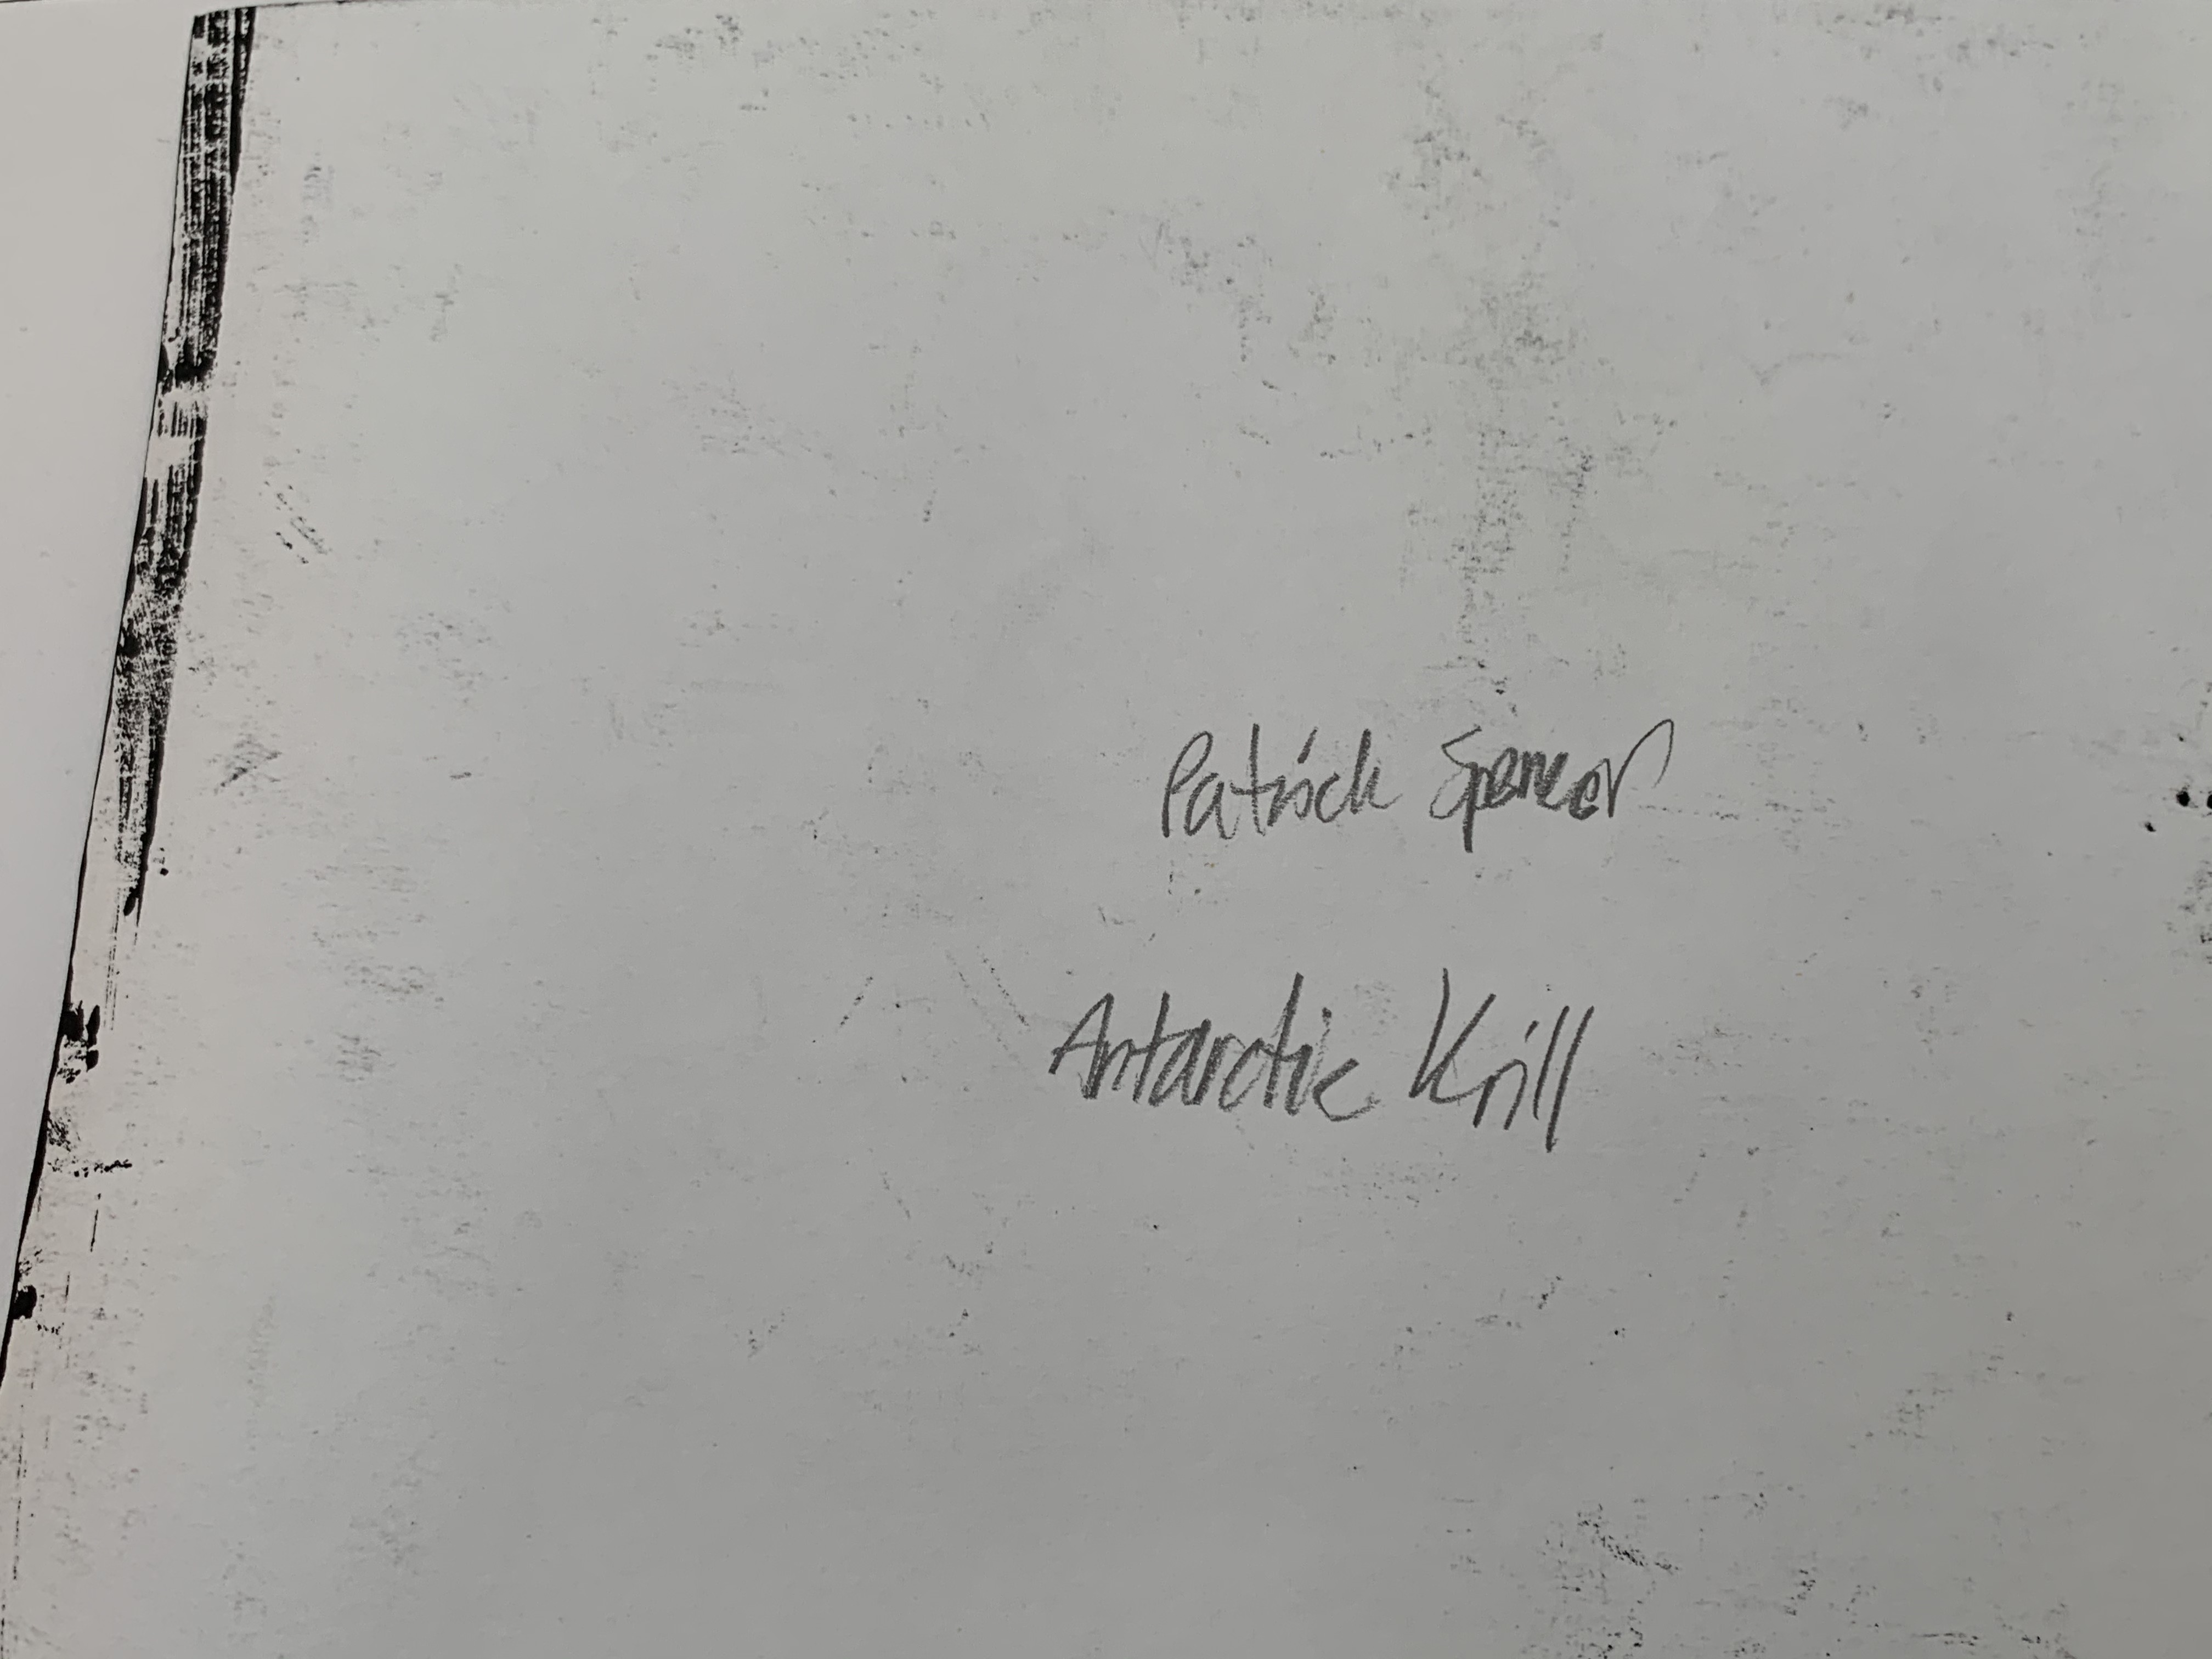 Patrick Spencer
Antarctic Krill